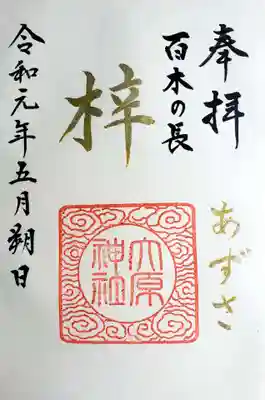 奉拝
あずさ
百木の長
梓
大原
神社
令和元年五月朔日